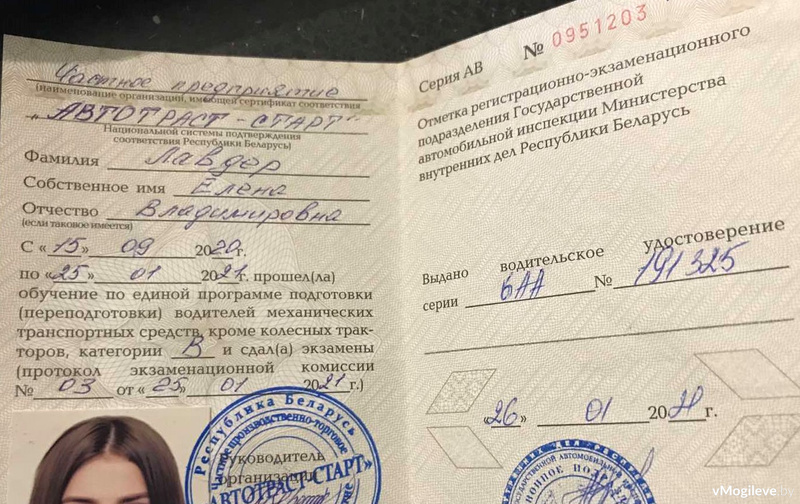 Частное предприятие
(наименование организации, имеющей сертификат соответствия
„АВТОТРАСТ-СТАРТ"
Национальной системы подтверждения
соответствия Республики Беларусь)
Фамилия Лавдер
Собственное имя Елена
Отчество Владимировна
(если таковое имеется)
С «15» 09 2020г.
по «25» 01 2021г. прошел(ла)
обучение по единой программе подготовки
(переподготовки) водителей механических
транспортных средств, кроме колесных трак-
торов, категории В и сдал(а) экзамены
(протокол экзаменационной комиссии
№ 03 от «25» 01 2021г.)
Республика Беларусь
Частное производственно-торговое
Руководитель
организации
«АВТОТРАСТ-СТАРТ»
Серия АВ № 0951203
Отметка регистрационно-экзаменационного
подразделения Государственной
автомобильной инспекции Министерства
внутренних дел Республики Беларусь
Выдано водительское удостоверение
серии 6АА № 191325
«26» 01 2021г.
vMogileve.by